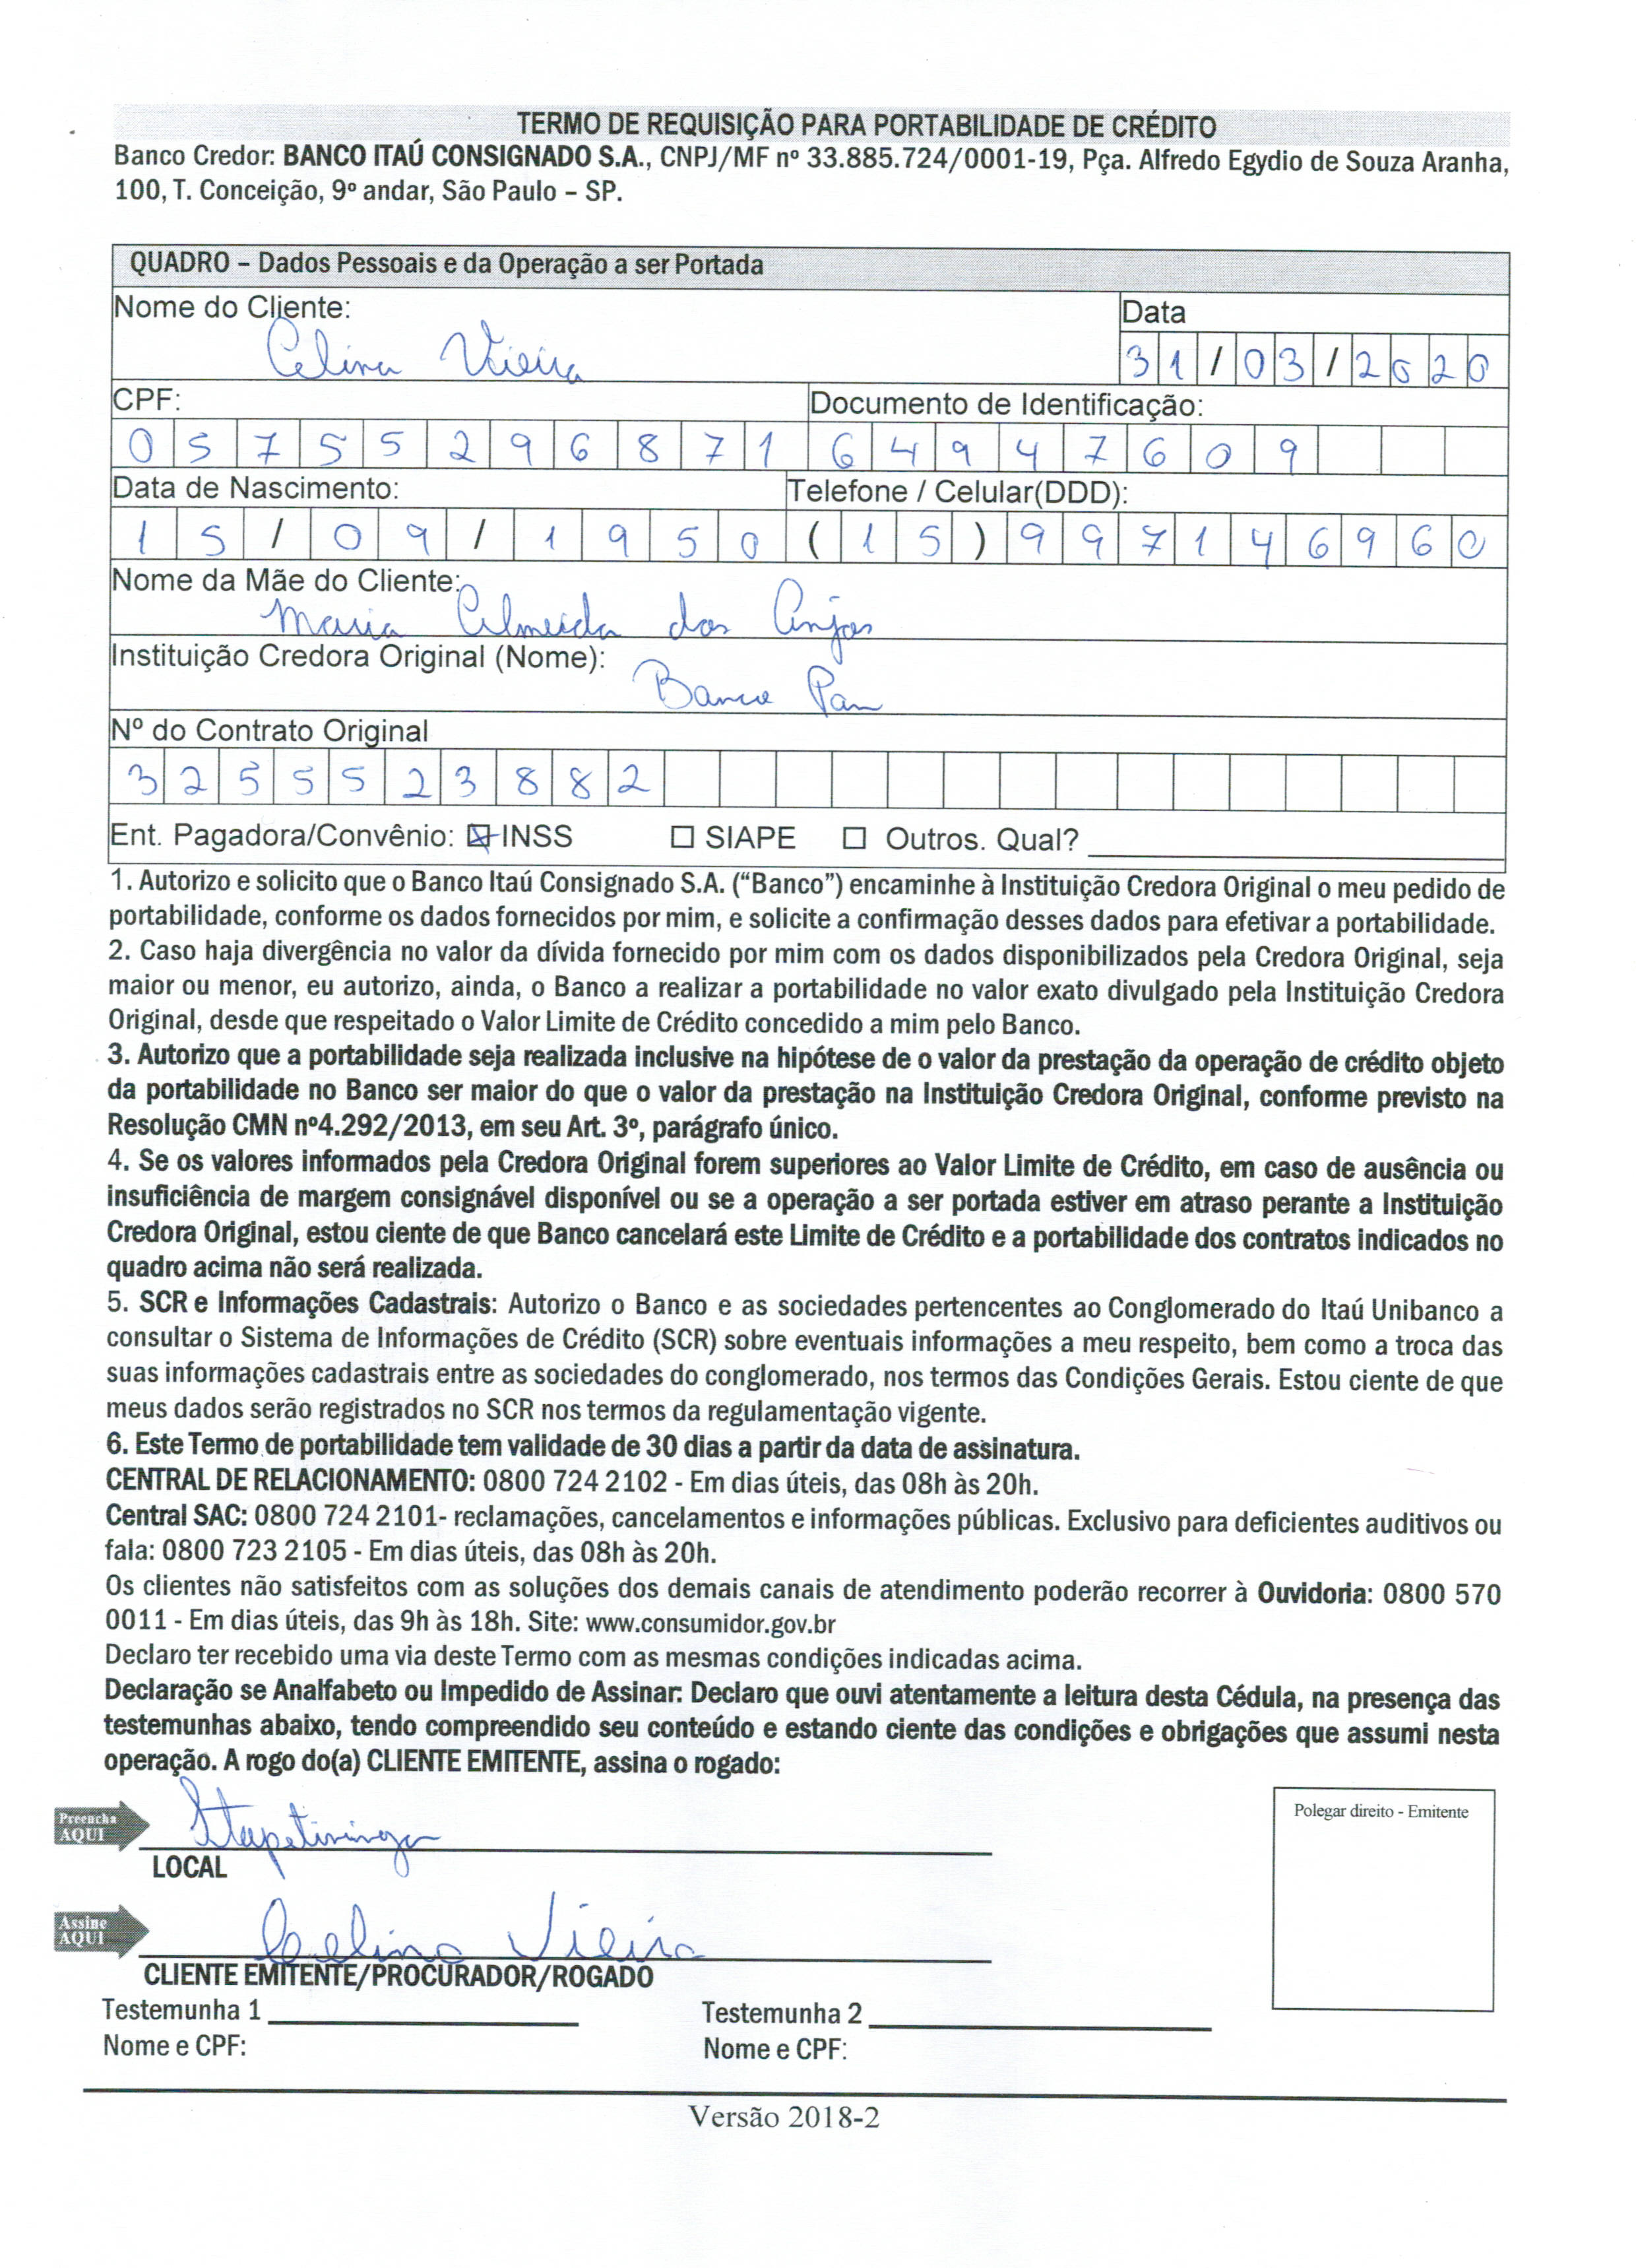 TERMO DE REQUISIÇÃO PARA PORTABILIDADE DE CRÉDITO
Banco Credor: BANCO ITAÚ CONSIGNADO S.A., CNPJ/MF nº 33.885.724/0001-19, Pça. Alfredo Egydio de Souza Aranha,
100, T. Conceição, 9º andar, São Paulo – SP.
QUADRO – Dados Pessoais e da Operação a ser Portada
Nome do Cliente: Data
Celina Vieira 31/03/2020
CPF: Documento de Identificação:
05755296871 64947609
Data de Nascimento: Telefone / Celular(DDD):
15/09/1950 (15)997146960
Nome da Mãe do Cliente:
Maria Almeida dos Anjos
Instituição Credora Original (Nome):
Banco Pan
Nº do Contrato Original
3255523882
Ent. Pagadora/Convênio: ☒ INSS ☐ SIAPE ☐ Outros. Qual?
1. Autorizo e solicito que o Banco Itaú Consignado S.A. (“Banco”) encaminhe à Instituição Credora Original o meu pedido de
portabilidade, conforme os dados fornecidos por mim, e solicite a confirmação desses dados para efetivar a portabilidade.
2. Caso haja divergência no valor da dívida fornecido por mim com os dados disponibilizados pela Credora Original, seja
maior ou menor, eu autorizo, ainda, o Banco a realizar a portabilidade no valor exato divulgado pela Instituição Credora
Original, desde que respeitado o Valor Limite de Crédito concedido a mim pelo Banco.
3. Autorizo que a portabilidade seja realizada inclusive na hipótese de o valor da prestação da operação de crédito objeto
da portabilidade no Banco ser maior do que o valor da prestação na Instituição Credora Original, conforme previsto na
Resolução CMN nº4.292/2013, em seu Art. 3º, parágrafo único.
4. Se os valores informados pela Credora Original forem superiores ao Valor Limite de Crédito, em caso de ausência ou
insuficiência de margem consignável disponível ou se a operação a ser portada estiver em atraso perante a Instituição
Credora Original, estou ciente de que Banco cancelará este Limite de Crédito e a portabilidade dos contratos indicados no
quadro acima não será realizada.
5. SCR e Informações Cadastrais: Autorizo o Banco e as sociedades pertencentes ao Conglomerado do Itaú Unibanco a
consultar o Sistema de Informações de Crédito (SCR) sobre eventuais informações a meu respeito, bem como a troca das
suas informações cadastrais entre as sociedades do conglomerado, nos termos das Condições Gerais. Estou ciente de que
meus dados serão registrados no SCR nos termos da regulamentação vigente.
6. Este Termo de portabilidade tem validade de 30 dias a partir da data de assinatura.
CENTRAL DE RELACIONAMENTO: 0800 724 2102 - Em dias úteis, das 08h às 20h.
Central SAC: 0800 724 2101- reclamações, cancelamentos e informações públicas. Exclusivo para deficientes auditivos ou
fala: 0800 723 2105 - Em dias úteis, das 08h às 20h.
Os clientes não satisfeitos com as soluções dos demais canais de atendimento poderão recorrer à Ouvidoria: 0800 570
0011 - Em dias úteis, das 9h às 18h. Site: www.consumidor.gov.br
Declaro ter recebido uma via deste Termo com as mesmas condições indicadas acima.
Declaração se Analfabeto ou Impedido de Assinar: Declaro que ouvi atentamente a leitura desta Cédula, na presença das
testemunhas abaixo, tendo compreendido seu conteúdo e estando ciente das condições e obrigações que assumi nesta
operação. A rogo do(a) CLIENTE EMITENTE, assina o rogado:
Preencha
AQUI
Itapetininga
LOCAL
Polegar direito - Emitente
Assine
AQUI
Celina Vieira
CLIENTE EMITENTE/PROCURADOR/ROGADO
Testemunha 1 Testemunha 2
Nome e CPF: Nome e CPF:
Versão 2018-2